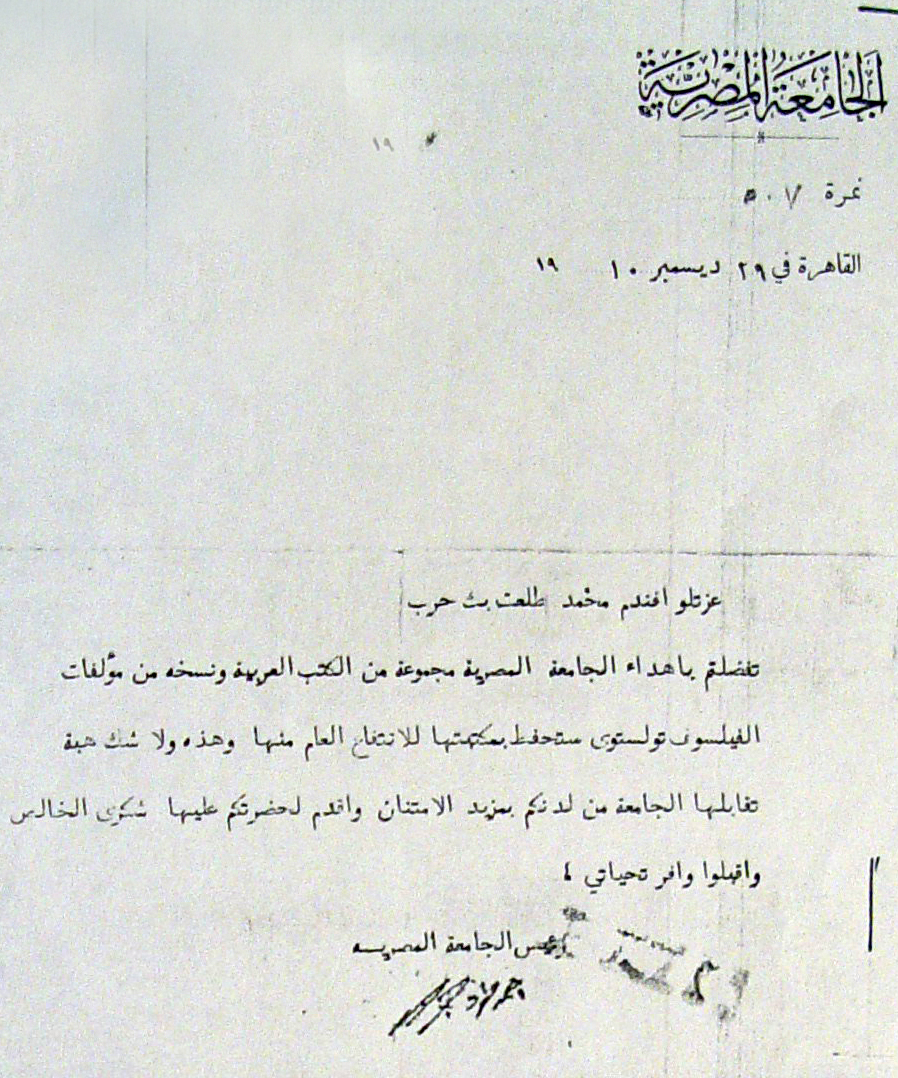 الجامعة المصرية
١٩
نمرة ٥٠٧
القاهرة في ٢٩ ديسمبر ١٠ ١٩
عزتلو افندم محمد طلعت بك حرب
تفضلتم باهداء الجامعة المصرية مجموعة من الكتب العربية ونسخه من مؤلفات
الفيلسوف تولستوى ستحفظ بمكتبتها للانتفاع العام منها وهذه ولا شك هبة
تقابلها الجامعة من لدنكم بمزيد الامتنان واقدم لحضرتكم عليها شكرى الخالص
واقبلوا وافر تحياتي
رئيس الجامعة المصريه